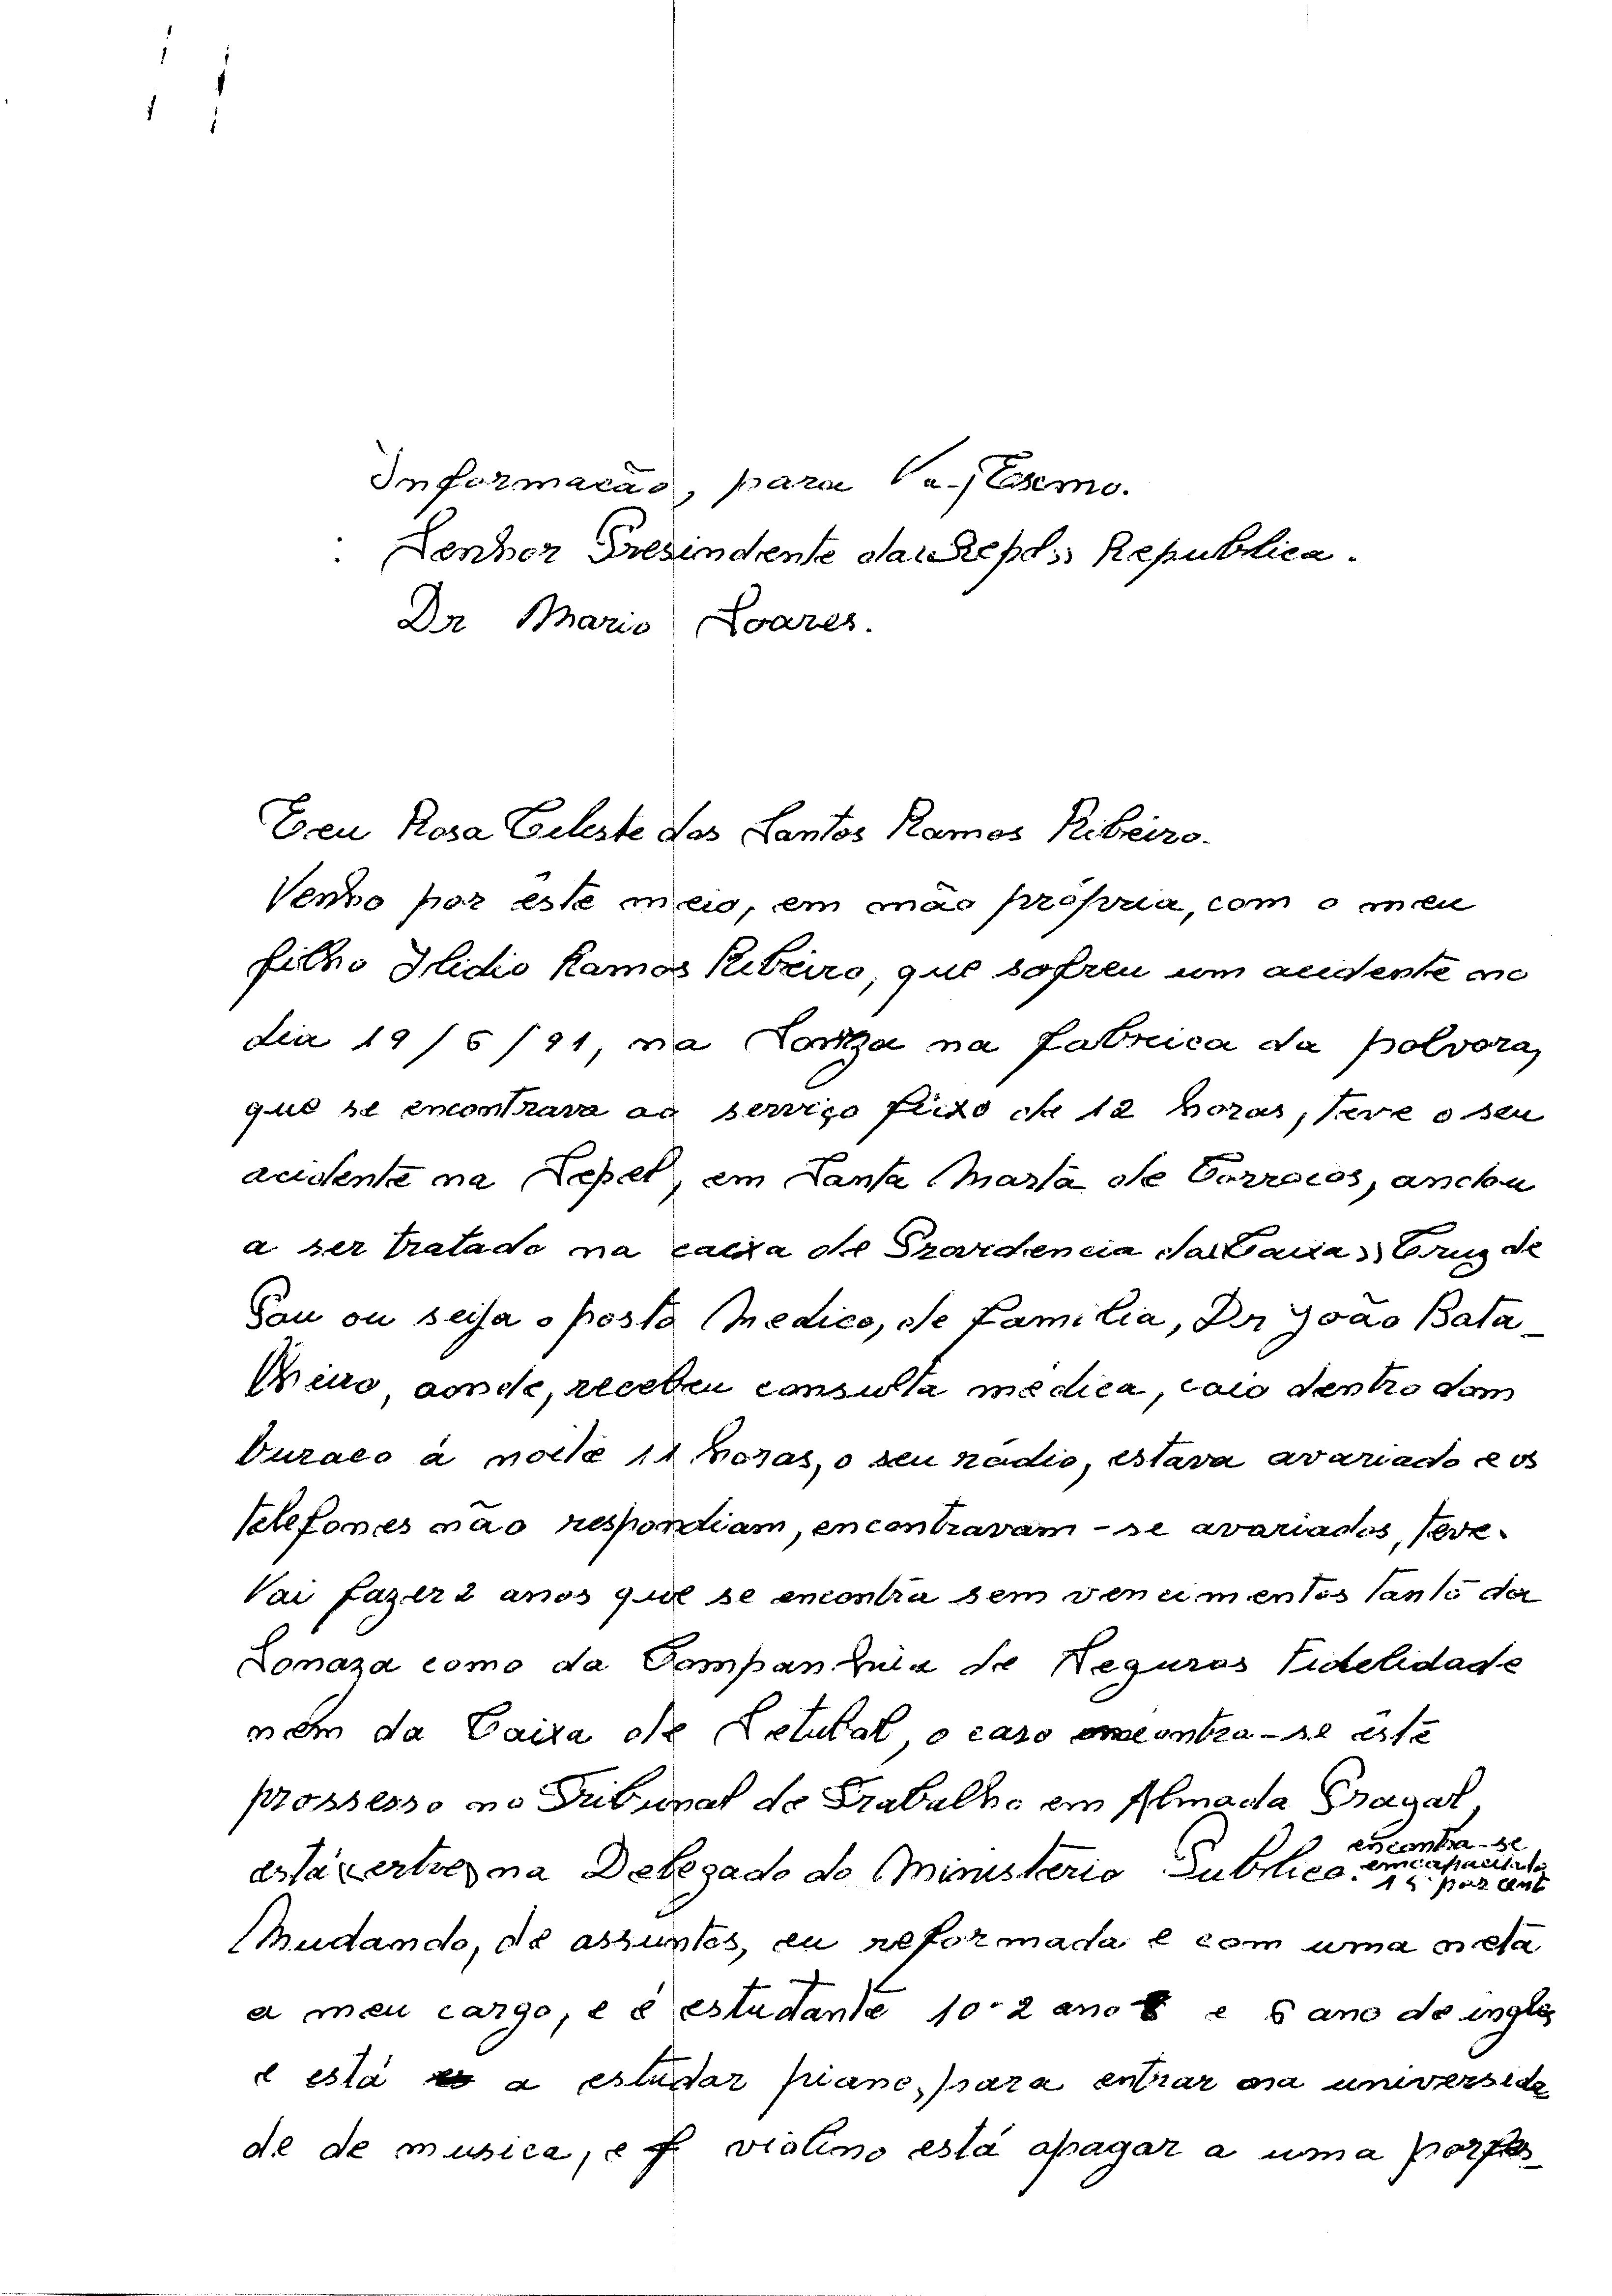 Informacão, para Va. Exemo.
Senhor Presindente da «Repd» Republica.
Dr Mario Soares.
Eeu Rosa Celeste dos Santos Ramos Ribeiro.
Venho por êste meio, em mão própria, com o meu
filho Ilidio Ramos Ribeiro, que sofreu um acidente no
dia 19/6/91, na na fabrica da polvora,
que se encontrava ao serviço fixo de 12 horas, teve o seu
acidente na Sepel, em Santa Marta de Corroios, andou
a ser tratado na caixa de Providencia da «Caixa» Cruz de
Pau ou seija o posto Medico, de Familia, Dr João Bata_
lheiro, aonde, recebeu consulta médica, caio dentro dom
buraco á noite 11 horas, o seu rádio, estava avariado e os
telefones não respondiam, encontravam-se avariados, teve.
Vai fazer 2 anos que se encontra sem vencimentos tanto da
Somaza como da Companhia de Seguros Fidelidade
nem da Caixa de Setubal, o caso encontra-se êste
prossesso no Tribunal de Trabalho em Almada Pragal,
está «entre» na Delegado do Ministério Publico. encontra-se
emcapacitado
15 por cent
Mudando, de assuntos, eu reformada e com uma neta
a meu cargo, e é estudante 10-2 ano e 6 ano de ingles
e está a estudar piano, para entrar na universida
de de musica, e violino está apagar a uma porfes_